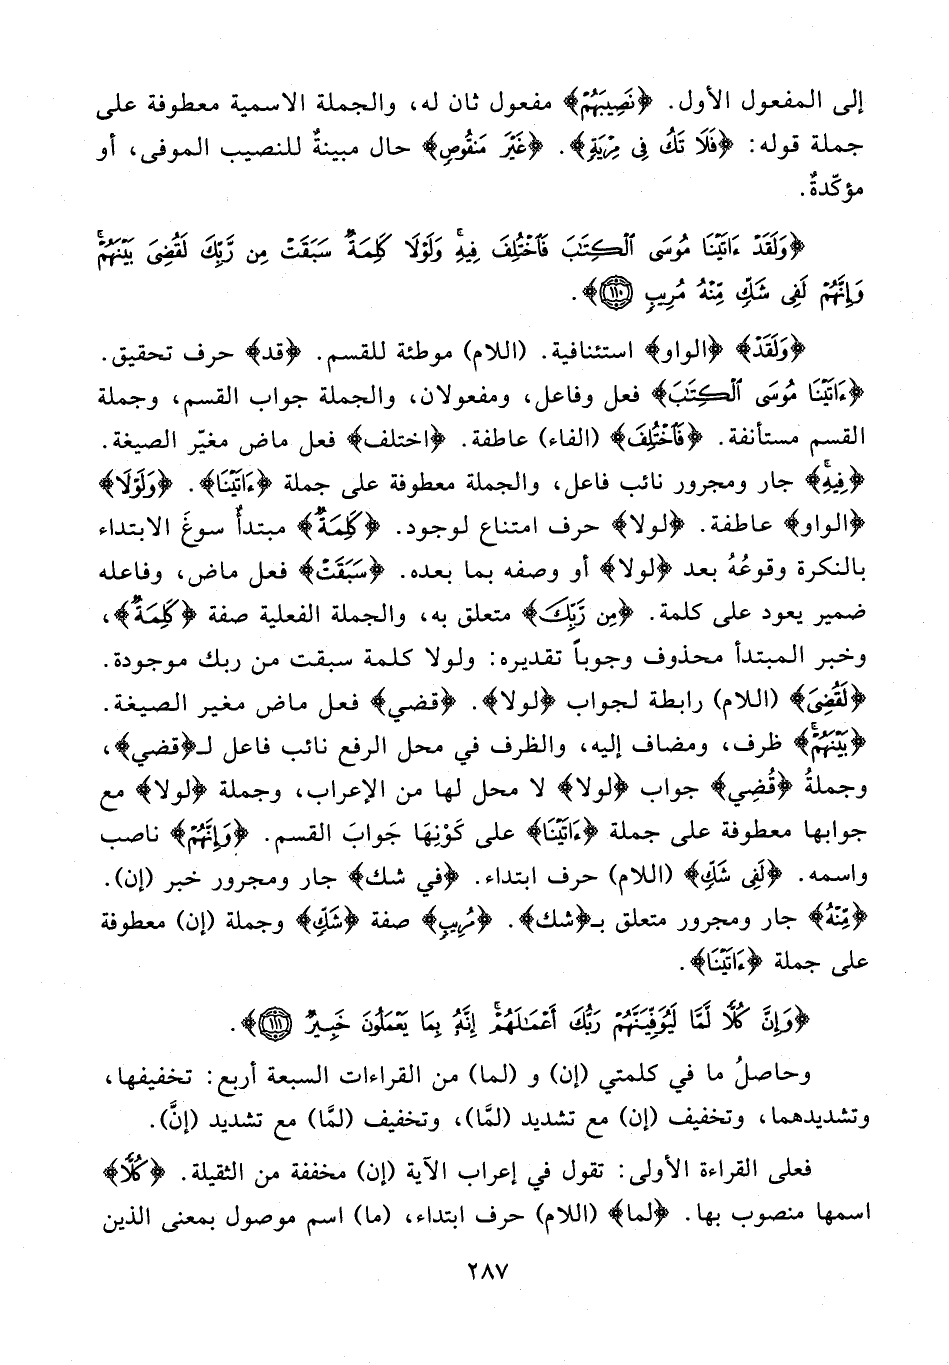 إلى المفعول الأول. ﴿نَصِيبَهُمْ﴾ مفعول ثان له، والجملة الاسمية معطوفة على
جملة قوله: ﴿فَلَا تَكُ فِي مِرْيَةٍ﴾. ﴿غَيْرَ مَنقُوصٍ﴾ حال مبينةٌ للنصيب الموفى، أو
مؤكّدةٌ.
﴿وَلَقَدْ ءَاتَيْنَا مُوسَى ٱلْكِتَٰبَ فَٱخْتُلِفَ فِيهِ ۚ وَلَوْلَا كَلِمَةٌ سَبَقَتْ مِن رَّبِّكَ لَقُضِيَ بَيْنَهُمْ ۚ
وَإِنَّهُمْ لَفِي شَكٍّ مِّنْهُ مُرِيبٍ ١١٠﴾.
﴿وَلَقَدْ﴾ ﴿الواو﴾ استئنافية. (اللام) موطئة للقسم. ﴿قد﴾ حرف تحقيق.
﴿ءَاتَيْنَا مُوسَى ٱلْكِتَٰبَ﴾ فعل وفاعل، ومفعولان، والجملة جواب القسم، وجملة
القسم مستأنفة. ﴿فَٱخْتُلِفَ﴾ (الفاء) عاطفة. ﴿اختلف﴾ فعل ماض مغيّر الصيغة.
﴿فِيهِ ۚ﴾ جار ومجرور نائب فاعل، والجملة معطوفة على جملة ﴿ءَاتَيْنَا﴾. ﴿وَلَوْلَا﴾
﴿الواو﴾ عاطفة. ﴿لولا﴾ حرف امتناع لوجود. ﴿كَلِمَةٌ﴾ مبتدأٌ سوغَ الابتداء
بالنكرة وقوعُهُ بعد ﴿لولا﴾ أو وصفه بما بعده. ﴿سَبَقَتْ﴾ فعل ماض، وفاعله
ضمير يعود على كلمة. ﴿مِن رَّبِّكَ﴾ متعلق به، والجملة الفعلية صفة ﴿كَلِمَةٌ﴾،
وخبر المبتدأ محذوف وجوباً تقديره: ولولا كلمة سبقت من ربك موجودة.
﴿لَقُضِيَ﴾ (اللام) رابطة لجواب ﴿لولا﴾. ﴿قضي﴾ فعل ماض مغير الصيغة.
﴿بَيْنَهُمْ ۚ﴾ ظرف، ومضاف إليه، والظرف في محل الرفع نائب فاعل لـ﴿قضي﴾،
وجملةُ ﴿قُضِي﴾ جواب ﴿لولا﴾ لا محل لها من الإعراب، وجملة ﴿لولا﴾ مع
جوابها معطوفة على جملة ﴿ءَاتَيْنَا﴾ على كَوْنِهَا جَوابَ القسم. ﴿وَإِنَّهُمْ﴾ ناصب
واسمه. ﴿لَفِي شَكٍّ﴾ (اللام) حرف ابتداء. ﴿في شك﴾ جار ومجرور خبر (إن).
﴿مِّنْهُ﴾ جار ومجرور متعلق بـ﴿شك﴾. ﴿مُرِيبٍ﴾ صفة ﴿شَكٍّ﴾ وجملة (إن) معطوفة
على جملة ﴿ءَاتَيْنَا﴾.
﴿وَإِنَّ كُلًّا لَّمَّا لَيُوَفِّيَنَّهُمْ رَبُّكَ أَعْمَٰلَهُمْ ۚ إِنَّهُ بِمَا يَعْمَلُونَ خَبِيرٌ ١١١﴾.
وحاصلُ ما في كلمتي (إن) و (لما) من القراءات السبعة أربع: تخفيفها،
وتشديدهما، وتخفيف (إن) مع تشديد (لمَّا)، وتخفيف (لمَّا) مع تشديد (إنَّ).
فعلى القراءة الأولى: تقول في إعراب الآية (إن) مخففة من الثقيلة. ﴿كُلًّا﴾
اسمها منصوب بها. ﴿لما﴾ (اللام) حرف ابتداء، (ما) اسم موصول بمعنى الذين
٢٨٧